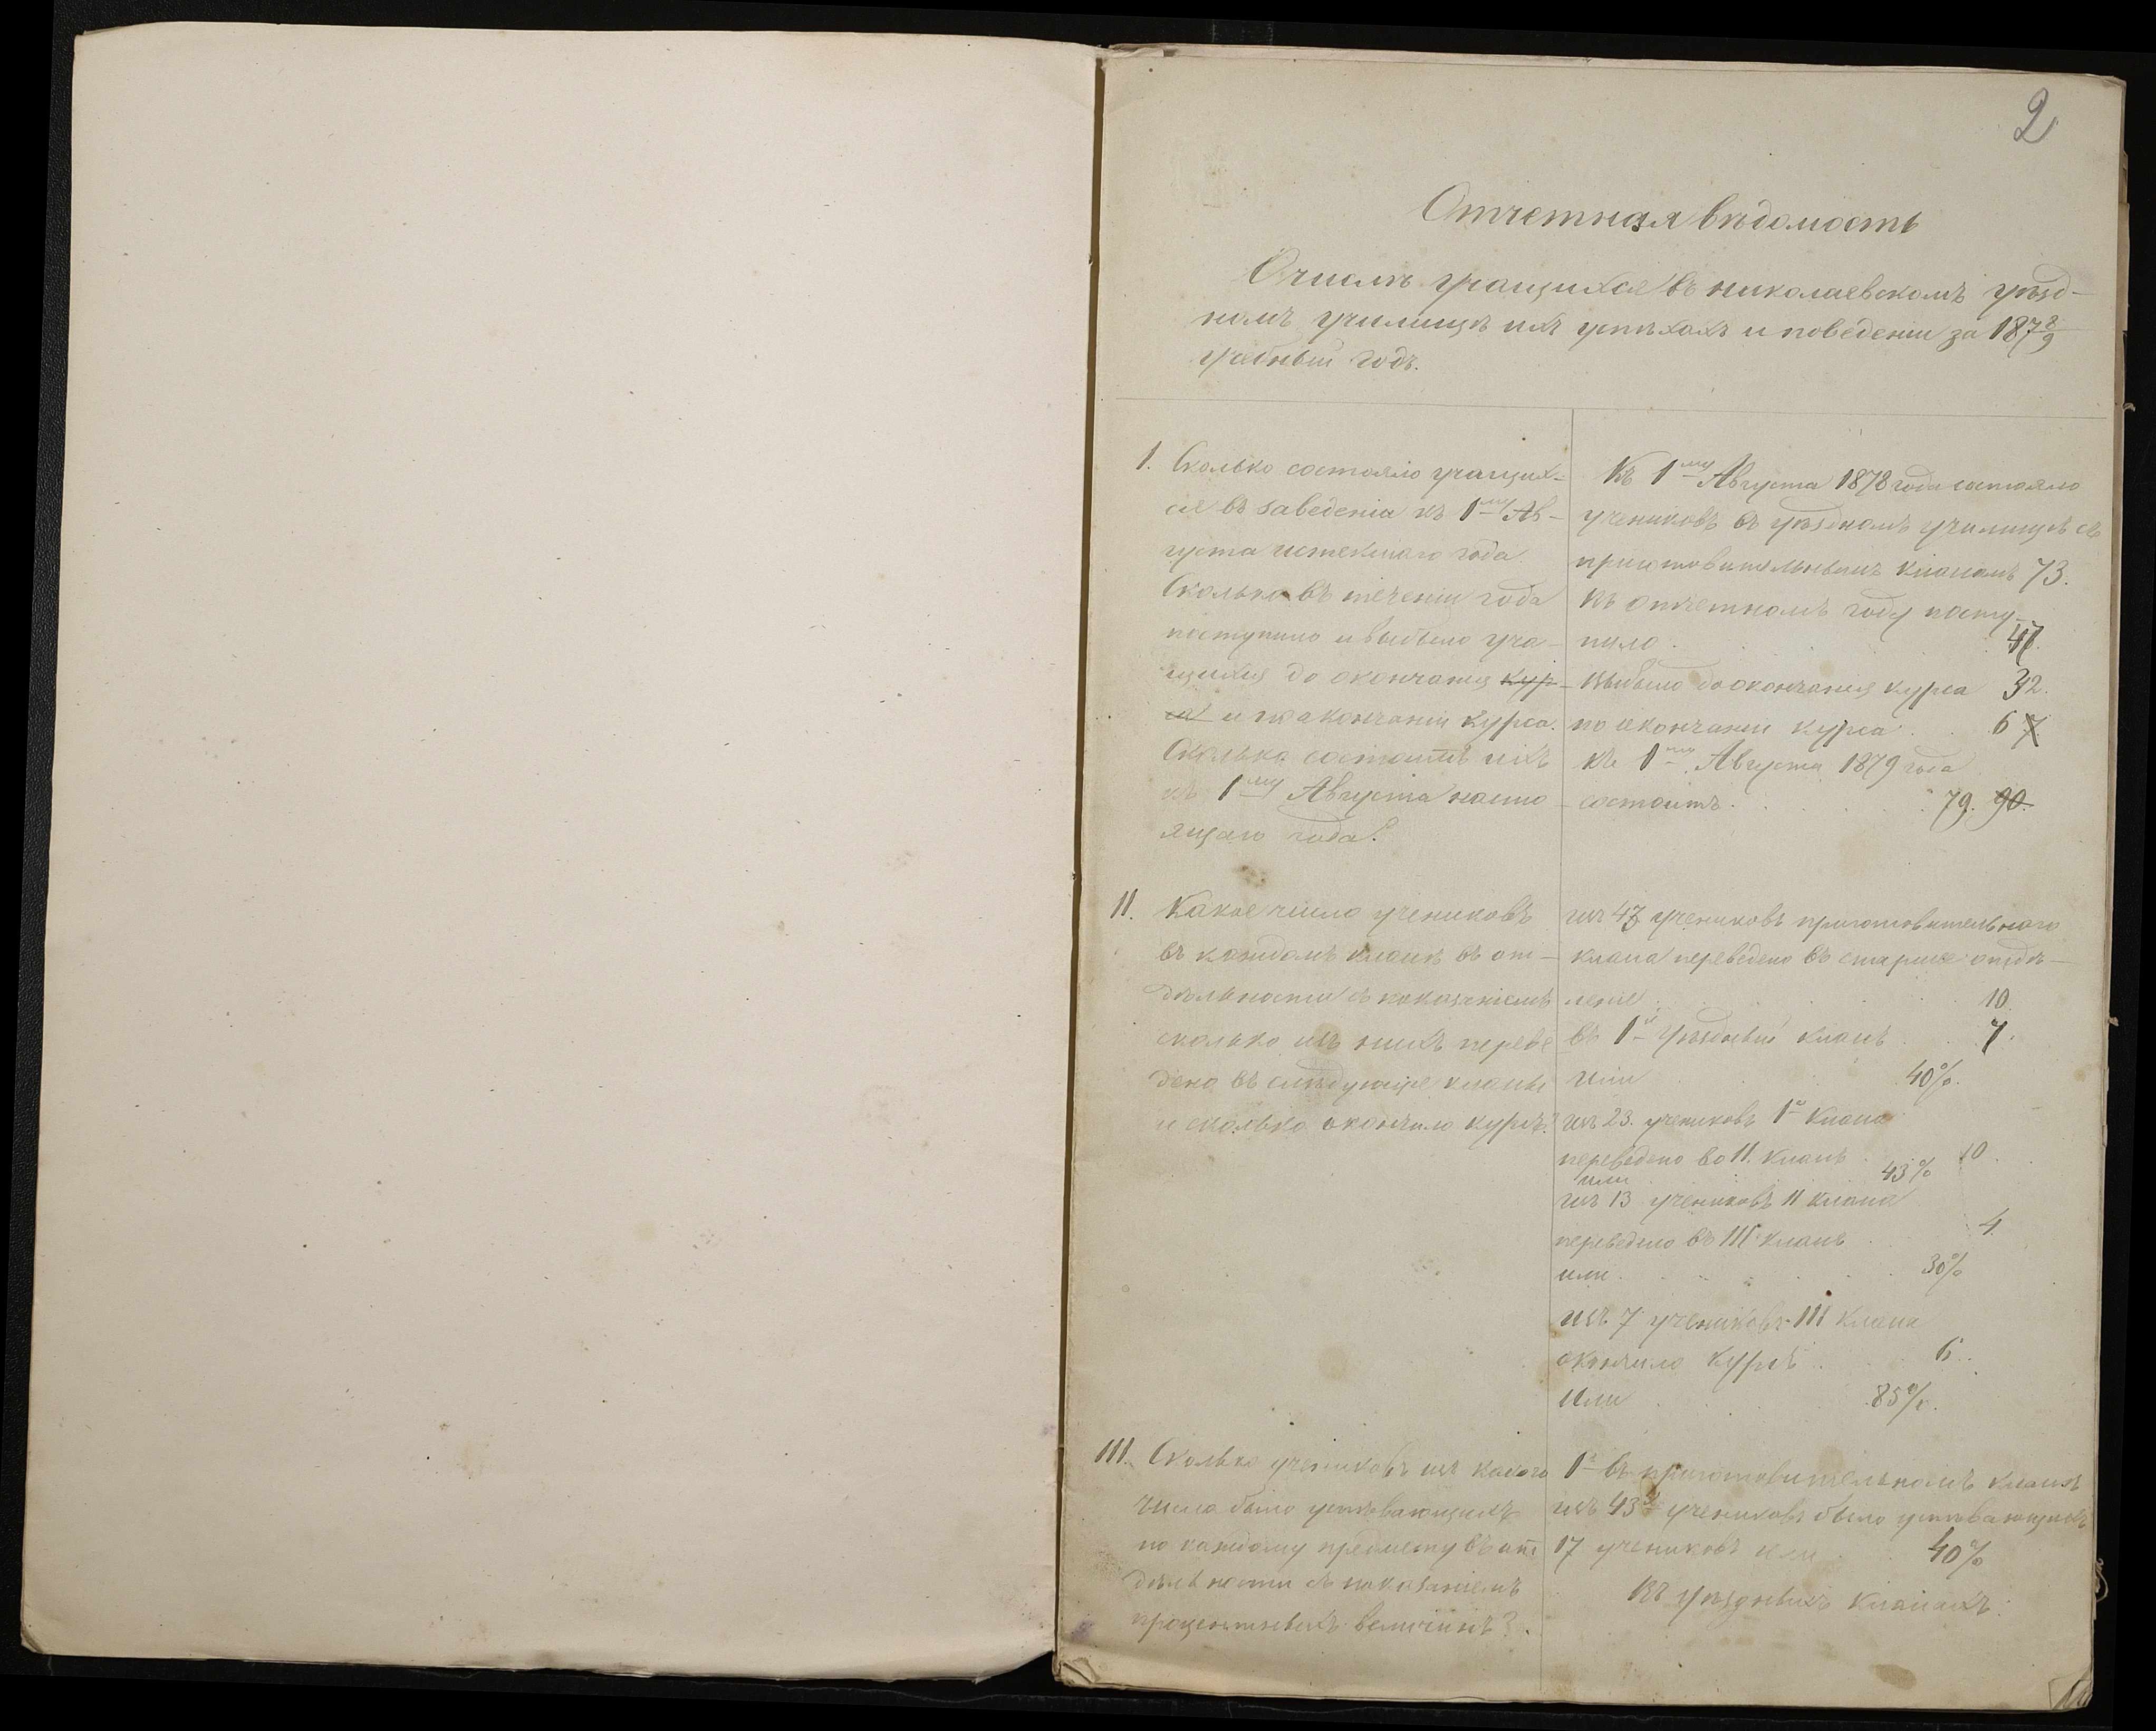 2
Отчетная вѣдомость
О числѣ учащихся въ николаевскомъ уѣзд-
номъ училищѣ ихъ успѣхахъ и поведеніи за 187 8/9
учебный годъ.
I. Сколько состояло учащих-
ся въ заведеніи къ 1му Ав-
густа истекшаго года
Сколько въ теченіи года
поступило и выбыло уча-
щихся до окончанія кур-
са и по окончаніи курса.
Сколько состоитъ ихъ
къ 1му Августа насто-
ящаго года?
Къ 1му Августа 1878 года состояло
учениковъ въ уѣздномъ училищѣ съ
приготовительнымъ классомъ 73.
въ отчетномъ году посту-
пило
выбыло до окончанія курса 32.
по окончаніи курса 6 7
къ 1му Августа 1879 года
состоитъ 79. 90.
II. Какое число учениковъ
въ каждомъ классѣ въ от-
дѣльности съ показаніемъ
сколько изъ нихъ переве
дено въ слѣдующіе классы
и сколько окончило курсъ?
изъ 43 учениковъ приготовительнаго
класса переведено въ старшее отдѣ-
леніе 10
въ 1й уѣздный классъ 7.
или 40%.
изъ 23. учениковъ 1го класса
переведено во II. классъ 10
или 43%
изъ 13 учениковъ II класса
переведено въ III классъ 4
или 30%
изъ 7 учениковъ III класса
окончило курсъ 6.
или 85%.
III. Сколько учениковъ изъ какого
числа было успѣвающихъ
по каждому предмету въ от
дѣльности съ показаніемъ
процентныхъ величинъ?
1е въ приготовительномъ классѣ
изъ 43х учениковъ было успѣвающихъ
17 учениковъ или 40%
Въ уѣздныхъ классахъ: